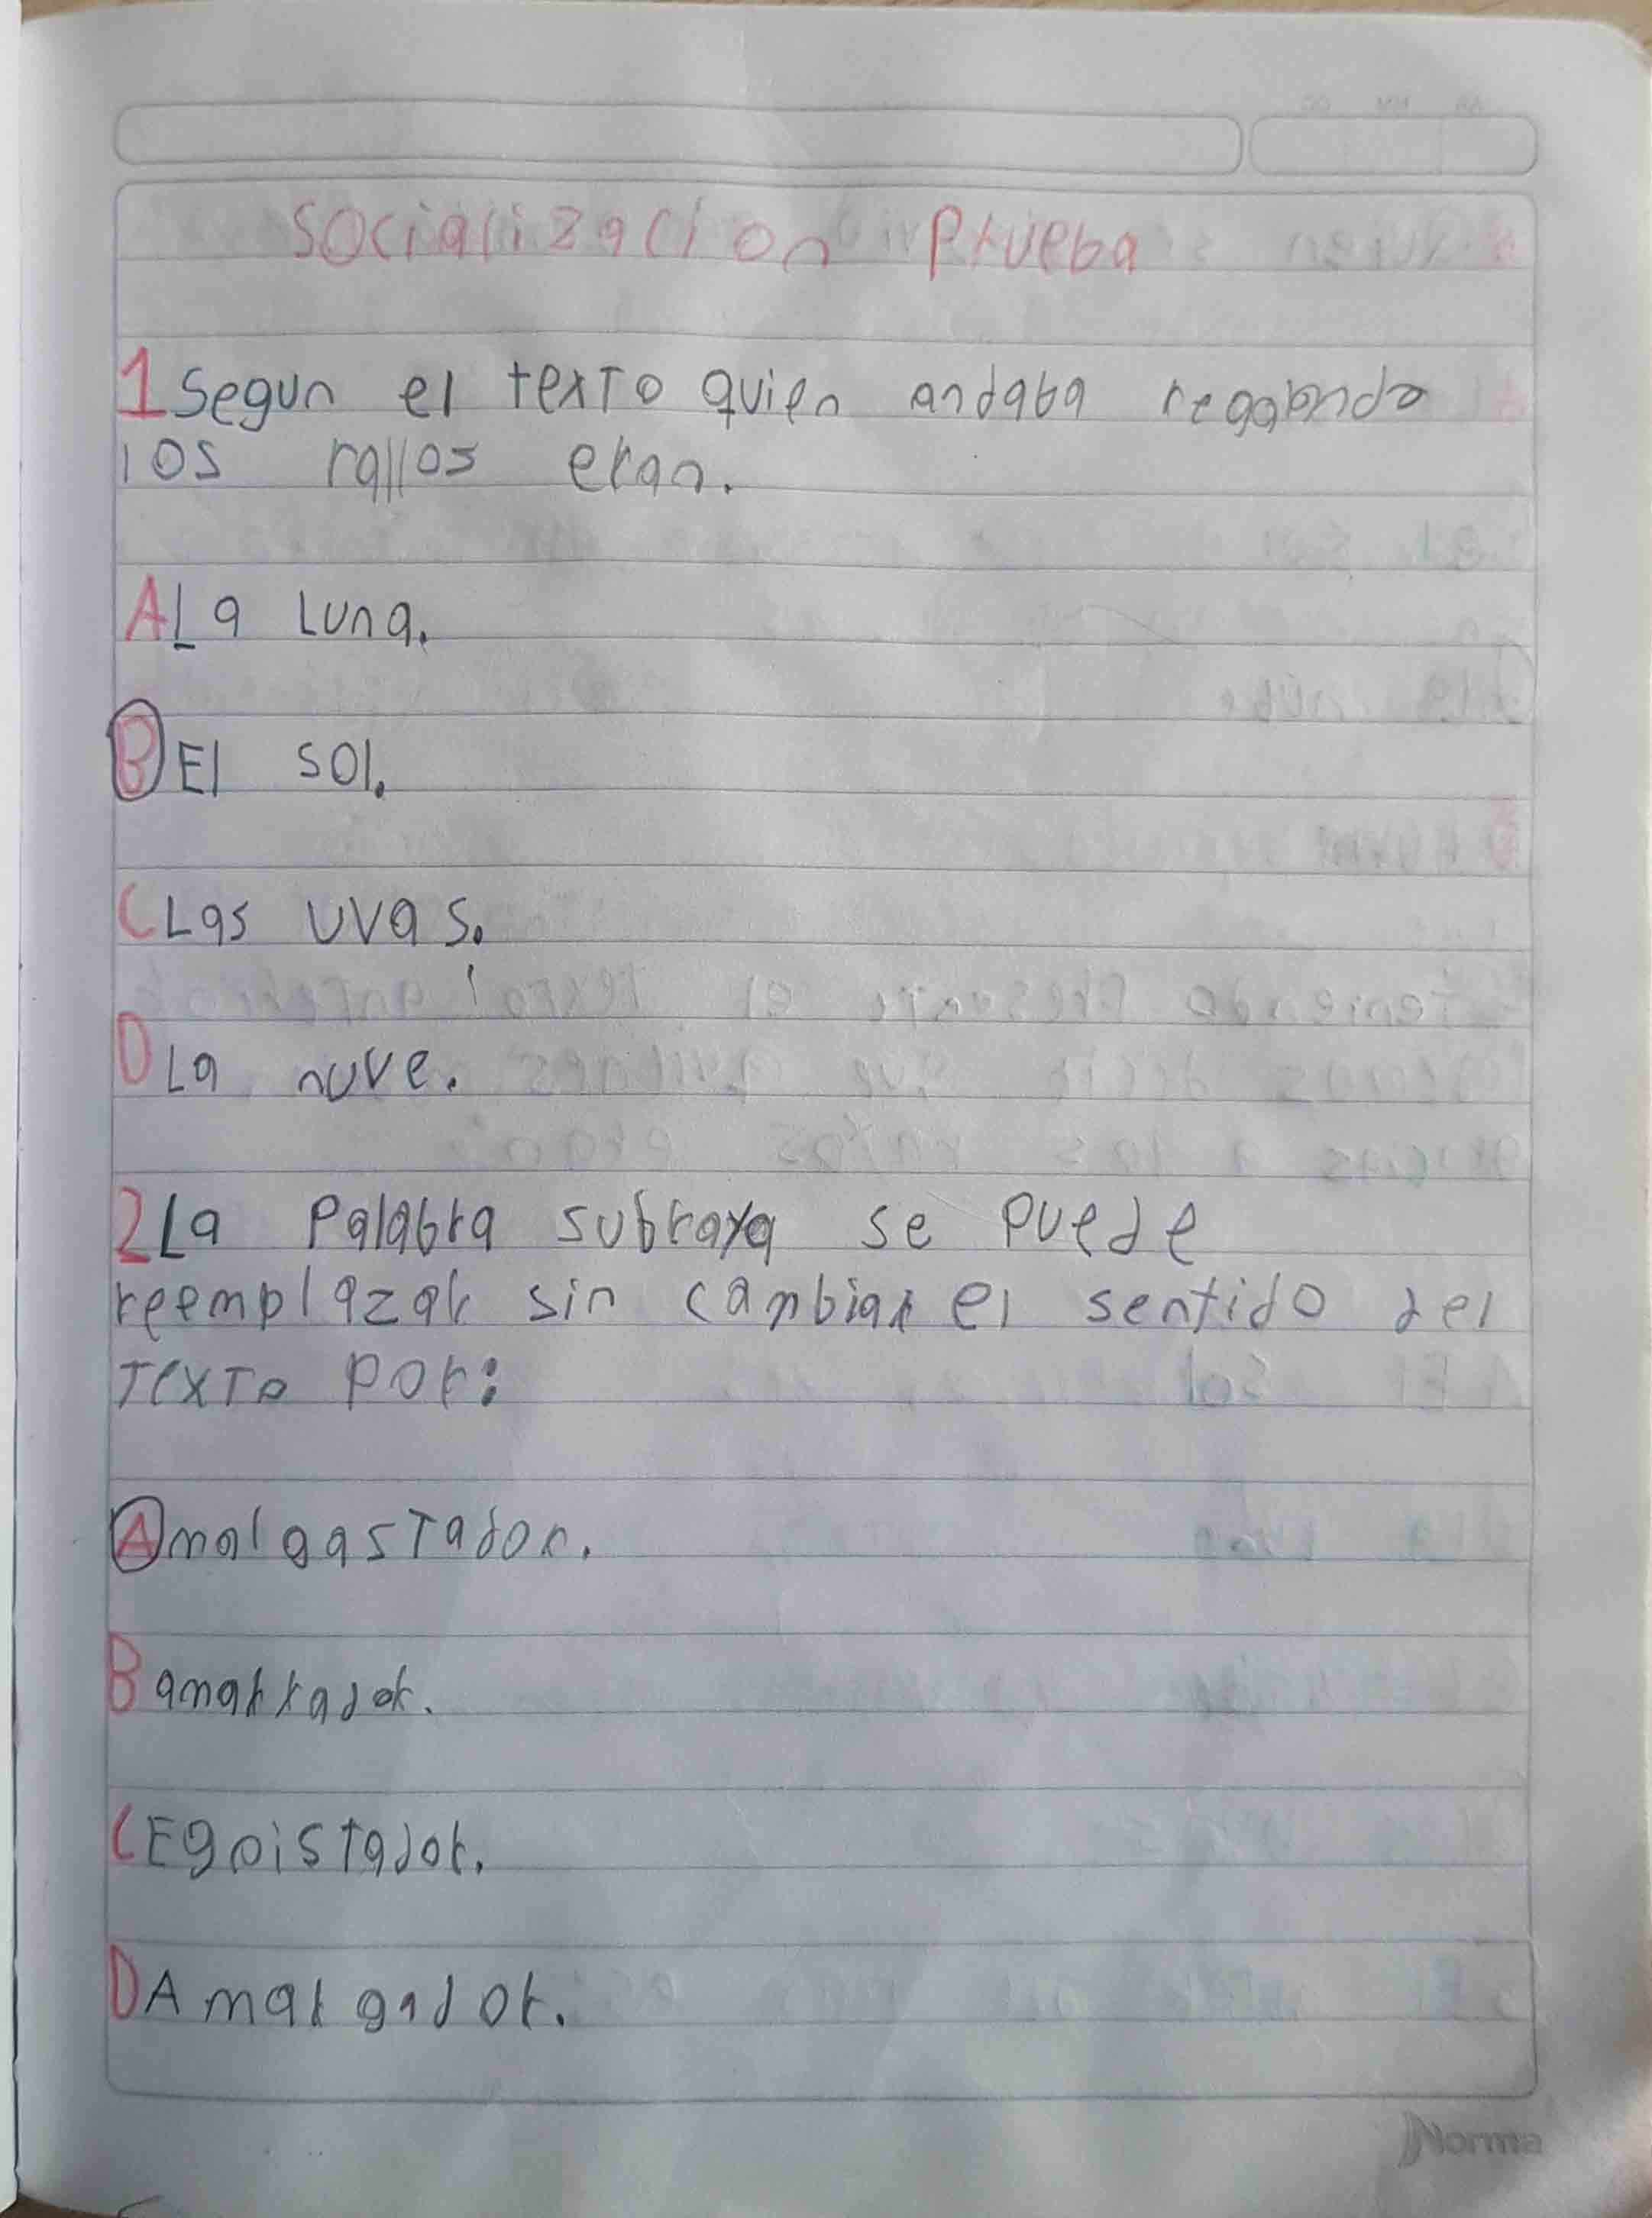 Socializacion Prueba
1 Segun el texto quien andaba regalando
los rallos eran.
A La Luna.
B El sol.
C Las uvas.
D La nuve.
2 La Palabra subraya se puede
reemplazar sin cambiar el sentido del
Texto por:
A malgastador.
B amarrador.
C Egoistador.
D Amargador.
Norma